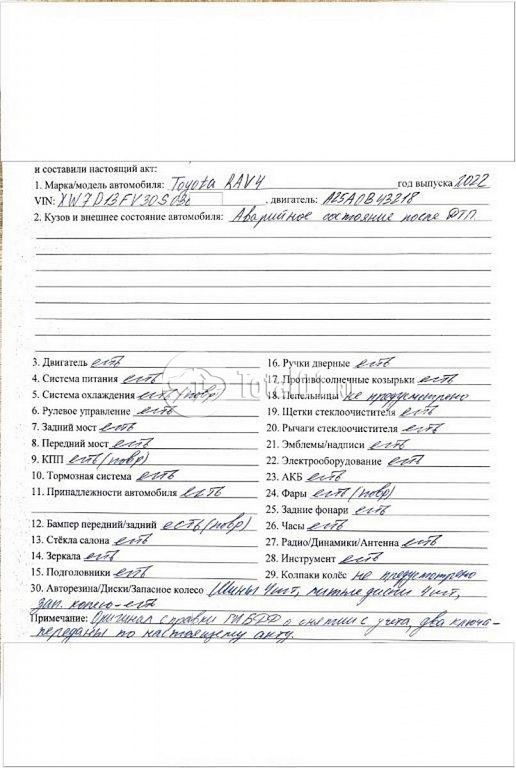 и составили настоящий акт:
1. Марка/модель автомобиля: Toyota RAV4 год выпуска 2022
VIN: XW7D13FV30S03 , двигатель: A25A0B43218
2. Кузов и внешнее состояние автомобиля: Аварийное состояние после ДТП
3. Двигатель есть
4. Система питания есть
5. Система охлаждения есть (повр)
6. Рулевое управление есть
7. Задний мост есть
8. Передний мост есть
9. КПП есть (повр)
10. Тормозная система есть
11. Принадлежности автомобиля есть
12. Бампер передний/задний есть (повр)
13. Стёкла салона есть
14. Зеркала есть
15. Подголовники есть
16. Ручки дверные есть
17. Противосолнечные козырьки есть
18. Пепельницы не предусмотрено
19. Щетки стеклоочистителя есть
20. Рычаги стеклоочистителя есть
21. Эмблемы/надписи есть
22. Электрооборудование есть
23. АКБ есть
24. Фары есть (повр)
25. Задние фонари есть
26. Часы есть
27. Радио/Динамики/Антенна есть
28. Инструмент есть
29. Колпаки колёс не предусмотрено
30. Авторезина/Диски/Запасное колесо Шины 4шт, литые диски 4шт,
зап. колесо-есть
Примечание: Оригинал справки ГИБДД о снятии с учета, два ключа-
переданы по настоящему акту.